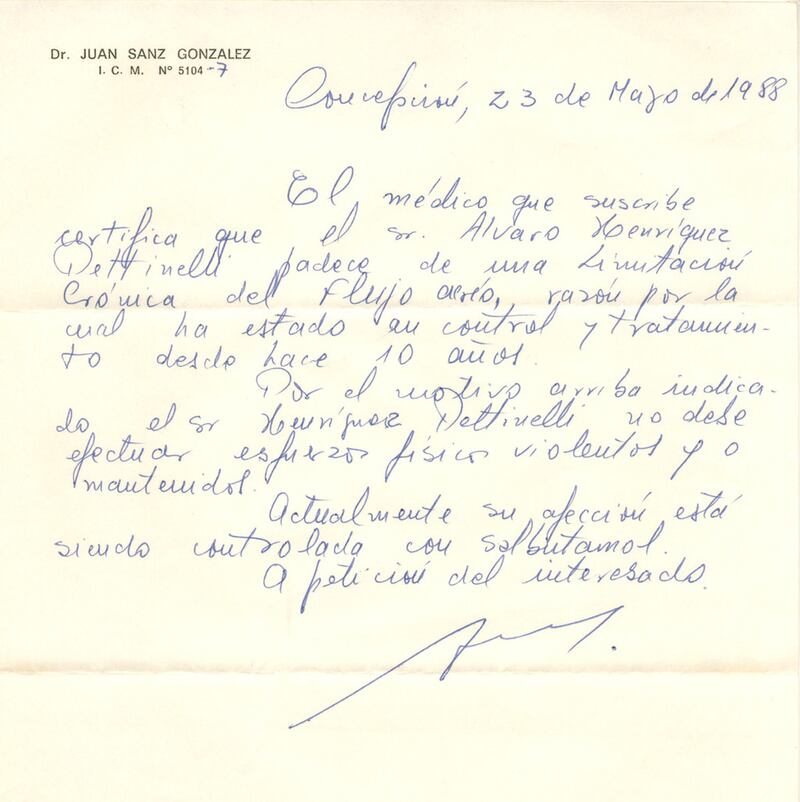 Dr. JUAN SANZ GONZALEZ
I. C. M. Nº 5104-7
Concepción, 23 de Mayo de 1988
El médico que suscribe
certifica que el sr. Alvaro Henríquez
Pettinelli padece de una Limitación
Crónica del Flujo aéreo, razón por la
cual ha estado en control y tratamien-
to desde hace 10 años.
Por el motivo arriba indica-
do el sr Henríquez Pettinelli no debe
efectuar esfuerzos físicos violentos y o
mantenidos.
Actualmente su afección está
siendo controlada con salbutamol.
A petición del interesado.